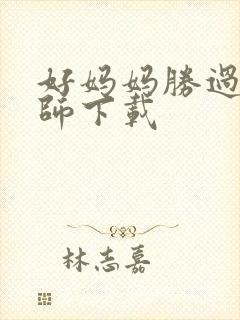 好妈妈勝過
師下載
林志嘉